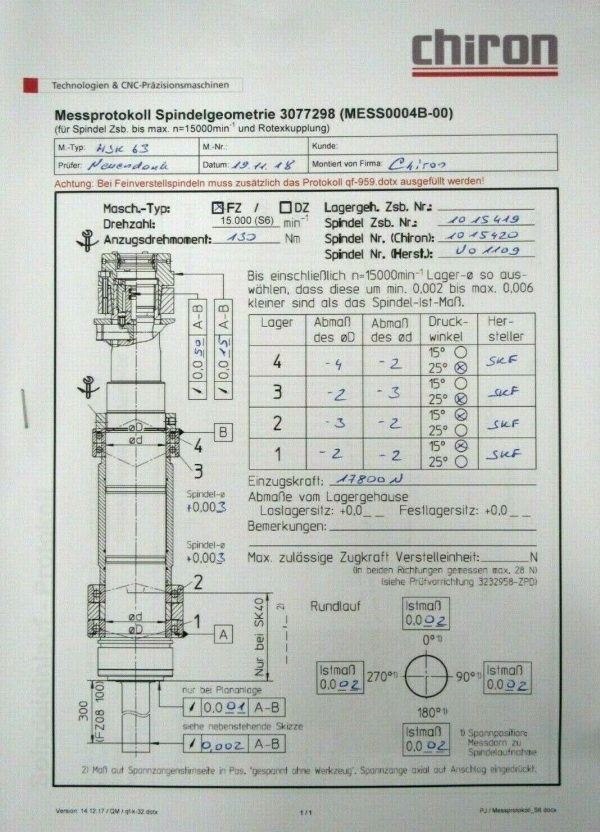 chiron
Technologien & CNC-Präzisionsmaschinen
Messprotokoll Spindelgeometrie 3077298 (MESS0004B-00)
(für Spindel Zsb. bis max. n=15000min⁻¹ und Rotexkupplung)
M.-Typ: HSK 63 M.-Nr.: Kunde:
Prüfer: Datum: 19.11.18 Montiert von Firma: Chiron
Achtung: Bei Feinverstellspindeln muss zusätzlich das Protokoll qf-959.dotx ausgefüllt werden!
Masch.-Typ: ☒ FZ / ☐ DZ Lagergeh. Zsb. Nr.:
Drehzahl: 15.000 (S6) min⁻¹ Spindel Zsb. Nr.: 1015419
Anzugsdrehmoment: 130 Nm Spindel Nr. (Chiron): 1015420
Spindel Nr. (Herst.): V01109
Bis einschließlich n=15000min⁻¹ Lager-ø so aus-
wählen, dass diese um min. 0,002 bis max. 0,006
kleiner sind als das Spindel-Ist-Maß.
0,050 A-B
0,015 A-B
Lager Abmaß des øD Abmaß des ød Druck-winkel Her-steller
4 -4 -2 15° ○ 25° ⊗ SKF
3 -2 -3 15° ○ 25° ⊗ SKF
2 -3 -2 15° ⊗ 25° ○ SKF
1 -2 -2 15° ⊗ 25° ○ SKF
øD
ød
B
4
3
Einzugskraft: 17800 N
Abmaße vom Lagergehäuse
Loslagersitz: +0,0_ _ Festlagersitz: +0,0_ _
Bemerkungen:
Spindel-ø
+0,003
Spindel-ø
+0,003
Max. zulässige Zugkraft Verstelleinheit: N
(in beiden Richtungen gemessen max. 28 N)
(siehe Prüfvorrichtung 3232958-ZPD)
2
ød
øD
1
A
Nur bei SK40
2)
Rundlauf
Istmaß
0,002
0°¹⁾
270°¹⁾
Istmaß
0,002
90°¹⁾
Istmaß
0,002
180°¹⁾
Istmaß
0,002
1) Spannposition:
Messdorn zu
Spindelaufnahme
300
(FZ08 100)
nur bei Plananlage
0,001 A-B
siehe nebenstehende Skizze
0,002 A-B
2) Maß auf Spannzangenstirnseite in Pos. "gespannt ohne Werkzeug". Spannzange axial auf Anschlag eingedrückt.
Version: 14.12.17 / QM / qf-k-32.dotx
1 / 1
PJ / Messprotokoll_S6.docx